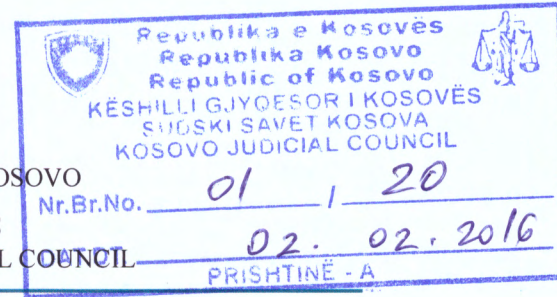 Republika e Kosovës
Republika Kosovo
Republic of Kosovo
KËSHILLI GJYQESOR I KOSOVËS
SUDSKI SAVET KOSOVA
KOSOVO JUDICIAL COUNCIL
OSOVO
Nr.Br.No. 01 / 20
L COUNCIL 02. 02. 2016
PRISHTINË - A